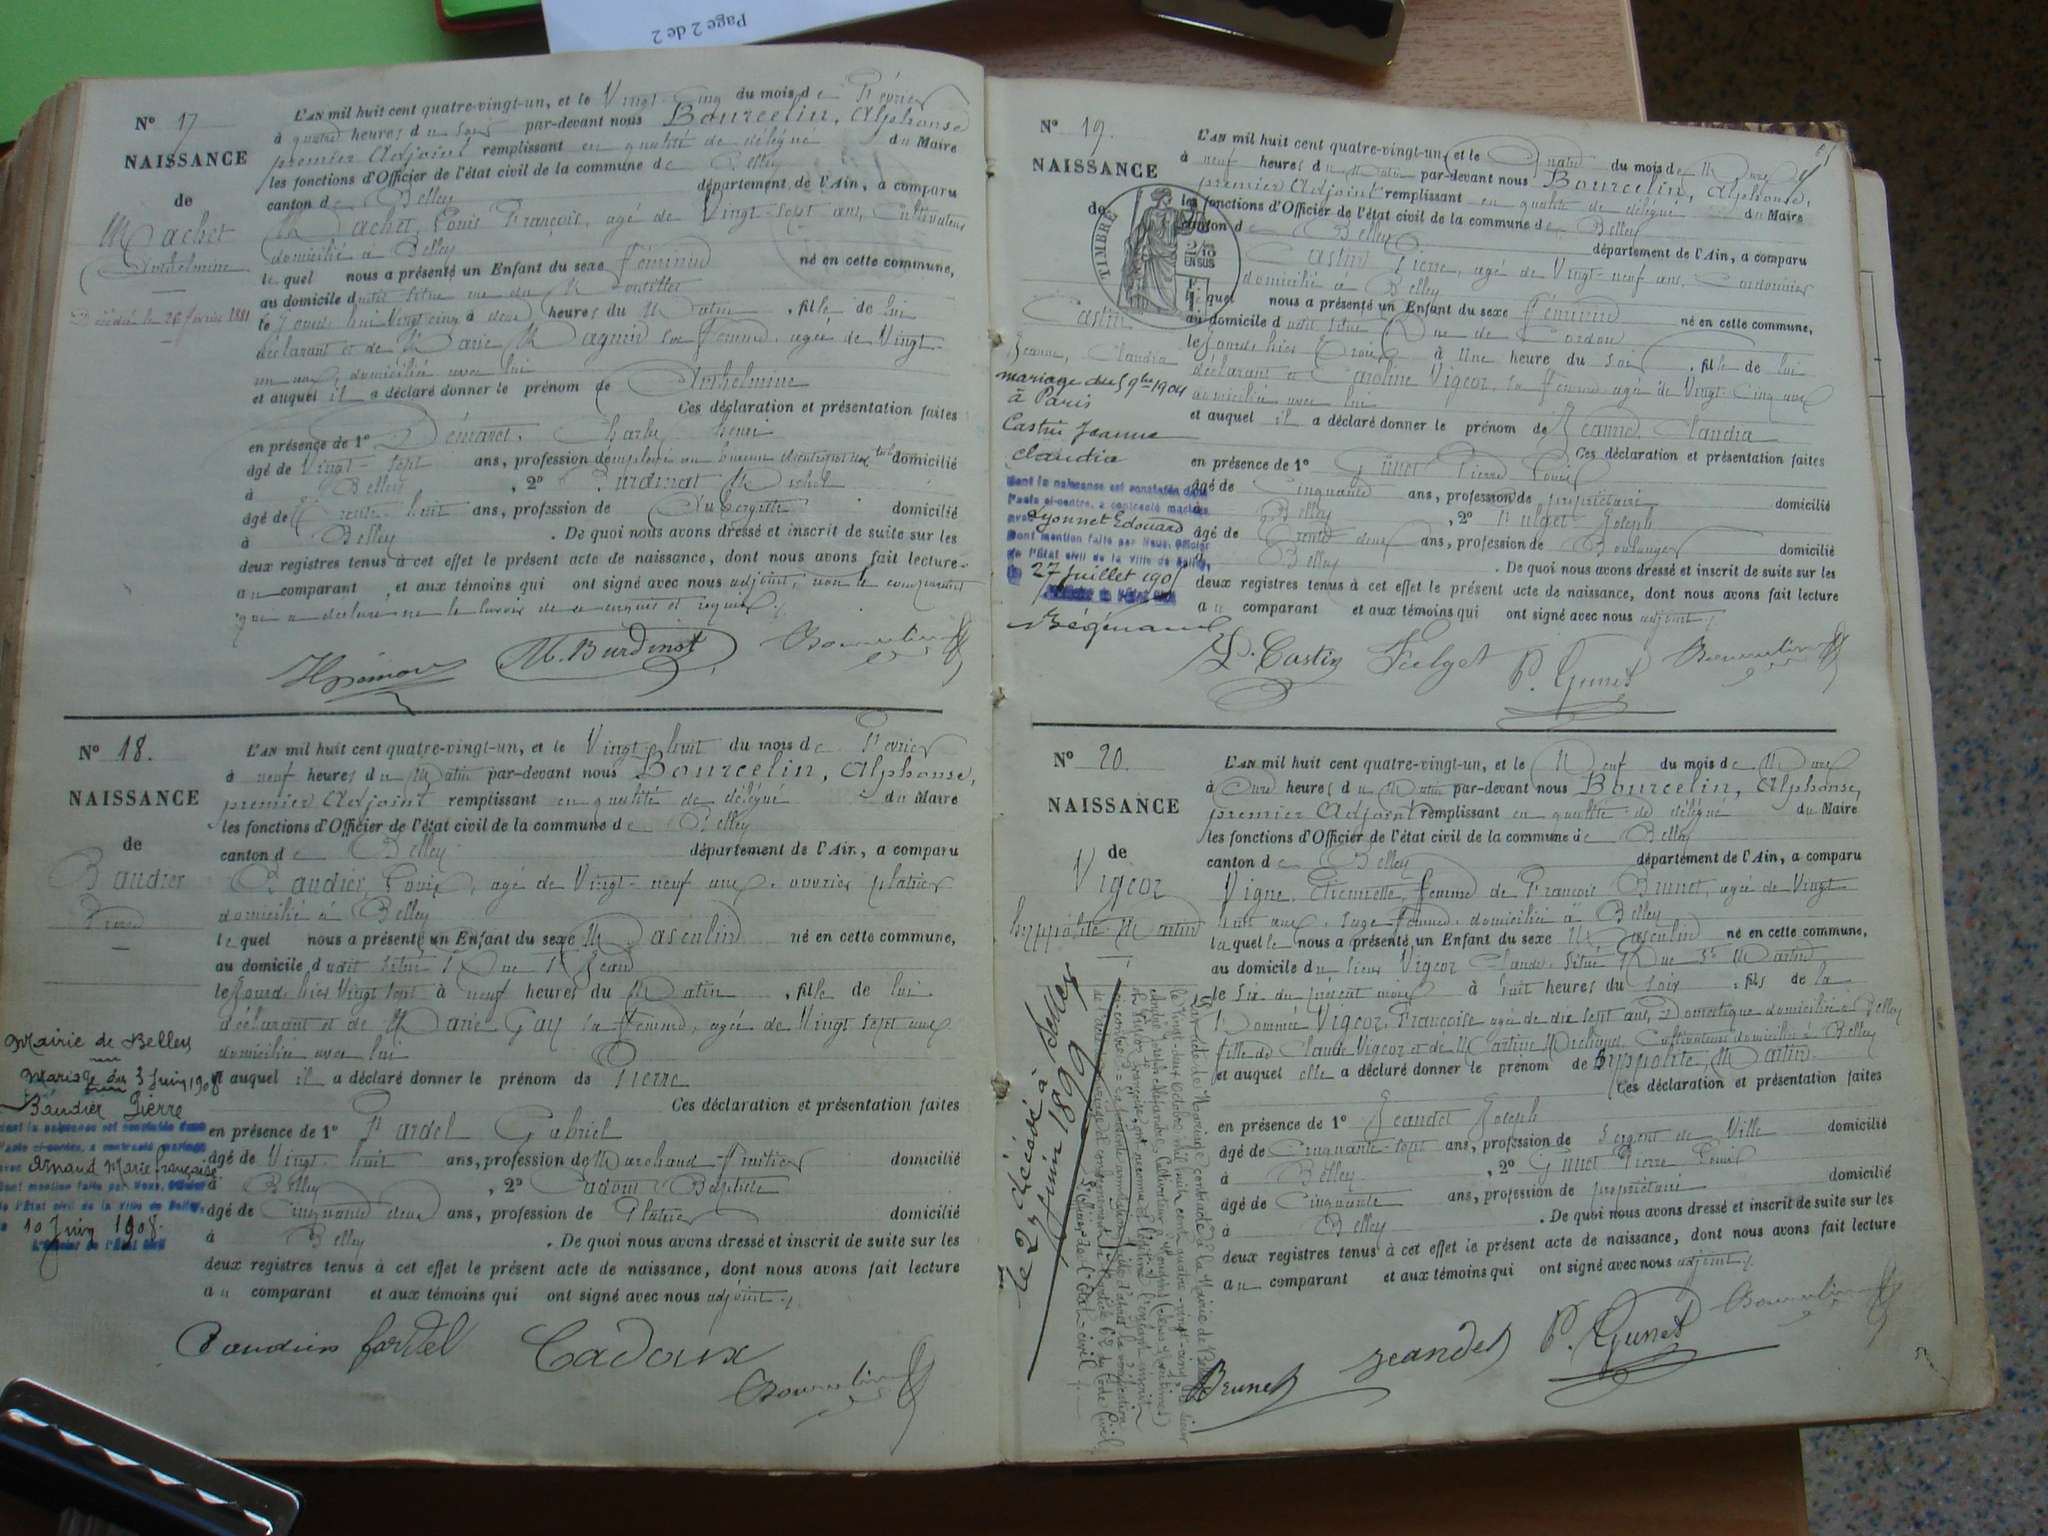 Page 2 de 2
N° 17
NAISSANCE
de
Machet
Anthelmine
Décédée le 26 février 1881
L'AN mil huit cent quatre-vingt-un, et le Vingt-cinq du mois de Février
à quatre heures du soir par-devant nous Bourcelin, Alphonse
premier Adjoint remplissant en qualité de délégué du Maire
les fonctions d'Officier de l'état civil de la commune de Belley
canton de Belley département de l'Ain, a comparu
Machet, Louis François, agé de Vingt-sept ans, Cultivateur
domicilié à Belley
lequel nous a présenté un Enfant du sexe féminin né en cette commune,
au domicile dudit situé rue du
le jourd'hui Vingt cinq à deux heures du Matin, fille de lui
déclarant et de Marie Magnin sa femme, agée de Vingt-
un ans, domiciliée avec lui
et auquel il a déclaré donner le prénom de Anthelmine
Ces déclaration et présentation faites
en présence de 1° Charles Henri
âgé de Vingt-sept ans, profession domicilié
à Belley, 2° Burdinat Michel
âgé de Trente-huit ans, profession de Aubergiste domicilié
à Belley. De quoi nous avons dressé et inscrit de suite sur les
deux registres tenus à cet effet le présent acte de naissance, dont nous avons fait lecture
au comparant, et aux témoins qui ont signé avec nous adjoint, non le comparant
qui a déclaré ne le savoir de ce enquis et requis
M. Burdinat Bourcelin
N° 18.
NAISSANCE
de
Baudier
Pierre
L'AN mil huit cent quatre-vingt-un, et le Vingt-huit du mois de Février
à neuf heures du Matin par-devant nous Bourcelin, Alphonse,
premier Adjoint remplissant en qualité de délégué du Maire
les fonctions d'Officier de l'état civil de la commune de Belley
canton de Belley département de l'Ain, a comparu
Baudier, Louis, agé de Vingt-neuf ans, ouvrier platrier
domicilié à Belley
lequel nous a présenté un Enfant du sexe Masculin né en cette commune,
au domicile dudit situé Rue St Jean
le jourd'hier Vingt sept à neuf heures du Matin, fils de lui
déclarant et de Marie Gay sa femme, agée de Vingt sept ans
domiciliée avec lui
et auquel il a déclaré donner le prénom de Pierre
Ces déclaration et présentation faites
en présence de 1° Fardel Gabriel
âgé de Vingt-huit ans, profession de Marchand-fruitier domicilié
à Belley, 2° Cadoux Baptiste
âgé de Cinquante deux ans, profession de Platrier domicilié
à Belley. De quoi nous avons dressé et inscrit de suite sur les
deux registres tenus à cet effet le présent acte de naissance, dont nous avons fait lecture
au comparant et aux témoins qui ont signé avec nous adjoint
Mairie de Belley
Mariage du 3 Juin 1908
Baudier Pierre
dont la naissance est constatée dans
l'acte ci-contre, a contracté mariage
avec Arnaud Marie Françoise
Dont mention faite par Nous, Officier
de l'État civil de la Ville de Belley,
le 10 Juin 1908.
L'Officier de l'État civil
Baudier fardel Cadoux
Bourcelin
N° 19.
NAISSANCE
de
TIMBRE
2/10
EN SUS
Castin
Jeanne, Claudia
L'AN mil huit cent quatre-vingt-un, et le Quatre du mois de Mars
à neuf heures du Matin par-devant nous Bourcelin, Alphonse,
premier Adjoint remplissant en qualité de délégué du Maire
les fonctions d'Officier de l'état civil de la commune de Belley
canton de Belley département de l'Ain, a comparu
Castin Pierre, agé de Vingt-neuf ans, Cordonnier
domicilié à Belley
lequel nous a présenté un Enfant du sexe féminin né en cette commune,
au domicile dudit situé Rue de Cordon
le jourd'hier Trois à Une heure du Soir, fille de lui
déclarant et Caroline Vigeor, sa femme agée de Vingt-cinq ans
domiciliée avec lui
et auquel il a déclaré donner le prénom de Jeanne, Claudia
Ces déclaration et présentation faites
en présence de 1° Gunet Pierre Louis
âgé de Cinquante ans, profession de propriétaire domicilié
à Belley, 2° Fulget Joseph
âgé de Trente deux ans, profession de Boulanger domicilié
à Belley. De quoi nous avons dressé et inscrit de suite sur les
deux registres tenus à cet effet le présent acte de naissance, dont nous avons fait lecture
au comparant et aux témoins qui ont signé avec nous adjoint
mariage du 5 9bre 1904
à Paris
Castin Jeanne
Claudia
Dont la naissance est constatée dans
l'acte ci-contre, a contracté mariage
avec Lyonnet Edouard
Dont mention faite par Nous, Officier
de l'État civil de la Ville de Belley,
le 27 Juillet 1905
P. Castin Fulget P. Gunet Bourcelin
N° 20.
NAISSANCE
de
Vigeor
hyppolite Martin
L'AN mil huit cent quatre-vingt-un, et le Neuf du mois de Mars
à Onze heures du Matin par-devant nous Bourcelin, Alphonse,
premier Adjoint remplissant en qualité de délégué du Maire
les fonctions d'Officier de l'état civil de la commune de Belley
canton de Belley département de l'Ain, a comparu
Vigne, Etiennette, femme de François Brunet, agée de Vingt
huit ans, Sage femme, domiciliée à Belley
laquelle nous a présenté un Enfant du sexe Masculin né en cette commune,
au domicile du sieur Vigeor Claude, situé Rue St Martin
le Six du présent mois à huit heures du Soir, fils de la
Nommée Vigeor, Françoise agée de dix sept ans, Domestique domiciliée à Belley
fille de Claude Vigeor et de Martine Michaud, Cultivateurs domiciliés à Belley
et auquel elle a déclaré donner le prénom de hyppolite, Martin
Ces déclaration et présentation faites
en présence de 1° Jeandet Joseph
âgé de Cinquante-sept ans, profession de Sergent de Ville domicilié
à Belley, 2° Gunet Pierre Louis
âgé de Cinquante ans, profession de propriétaire domicilié
à Belley. De quoi nous avons dressé et inscrit de suite sur les
deux registres tenus à cet effet le présent acte de naissance, dont nous avons fait lecture
au comparant et aux témoins qui ont signé avec nous adjoint
décédé à Belley
le 25 juin 1899
Par acte de Mariage contracté à la Mairie de Belley
le Vingt-deux Octobre mil huit cent quatre-vingt-cinq, le sieur
l'Officier de l'État-civil
Brunet Jeandet P. Gunet Bourcelin